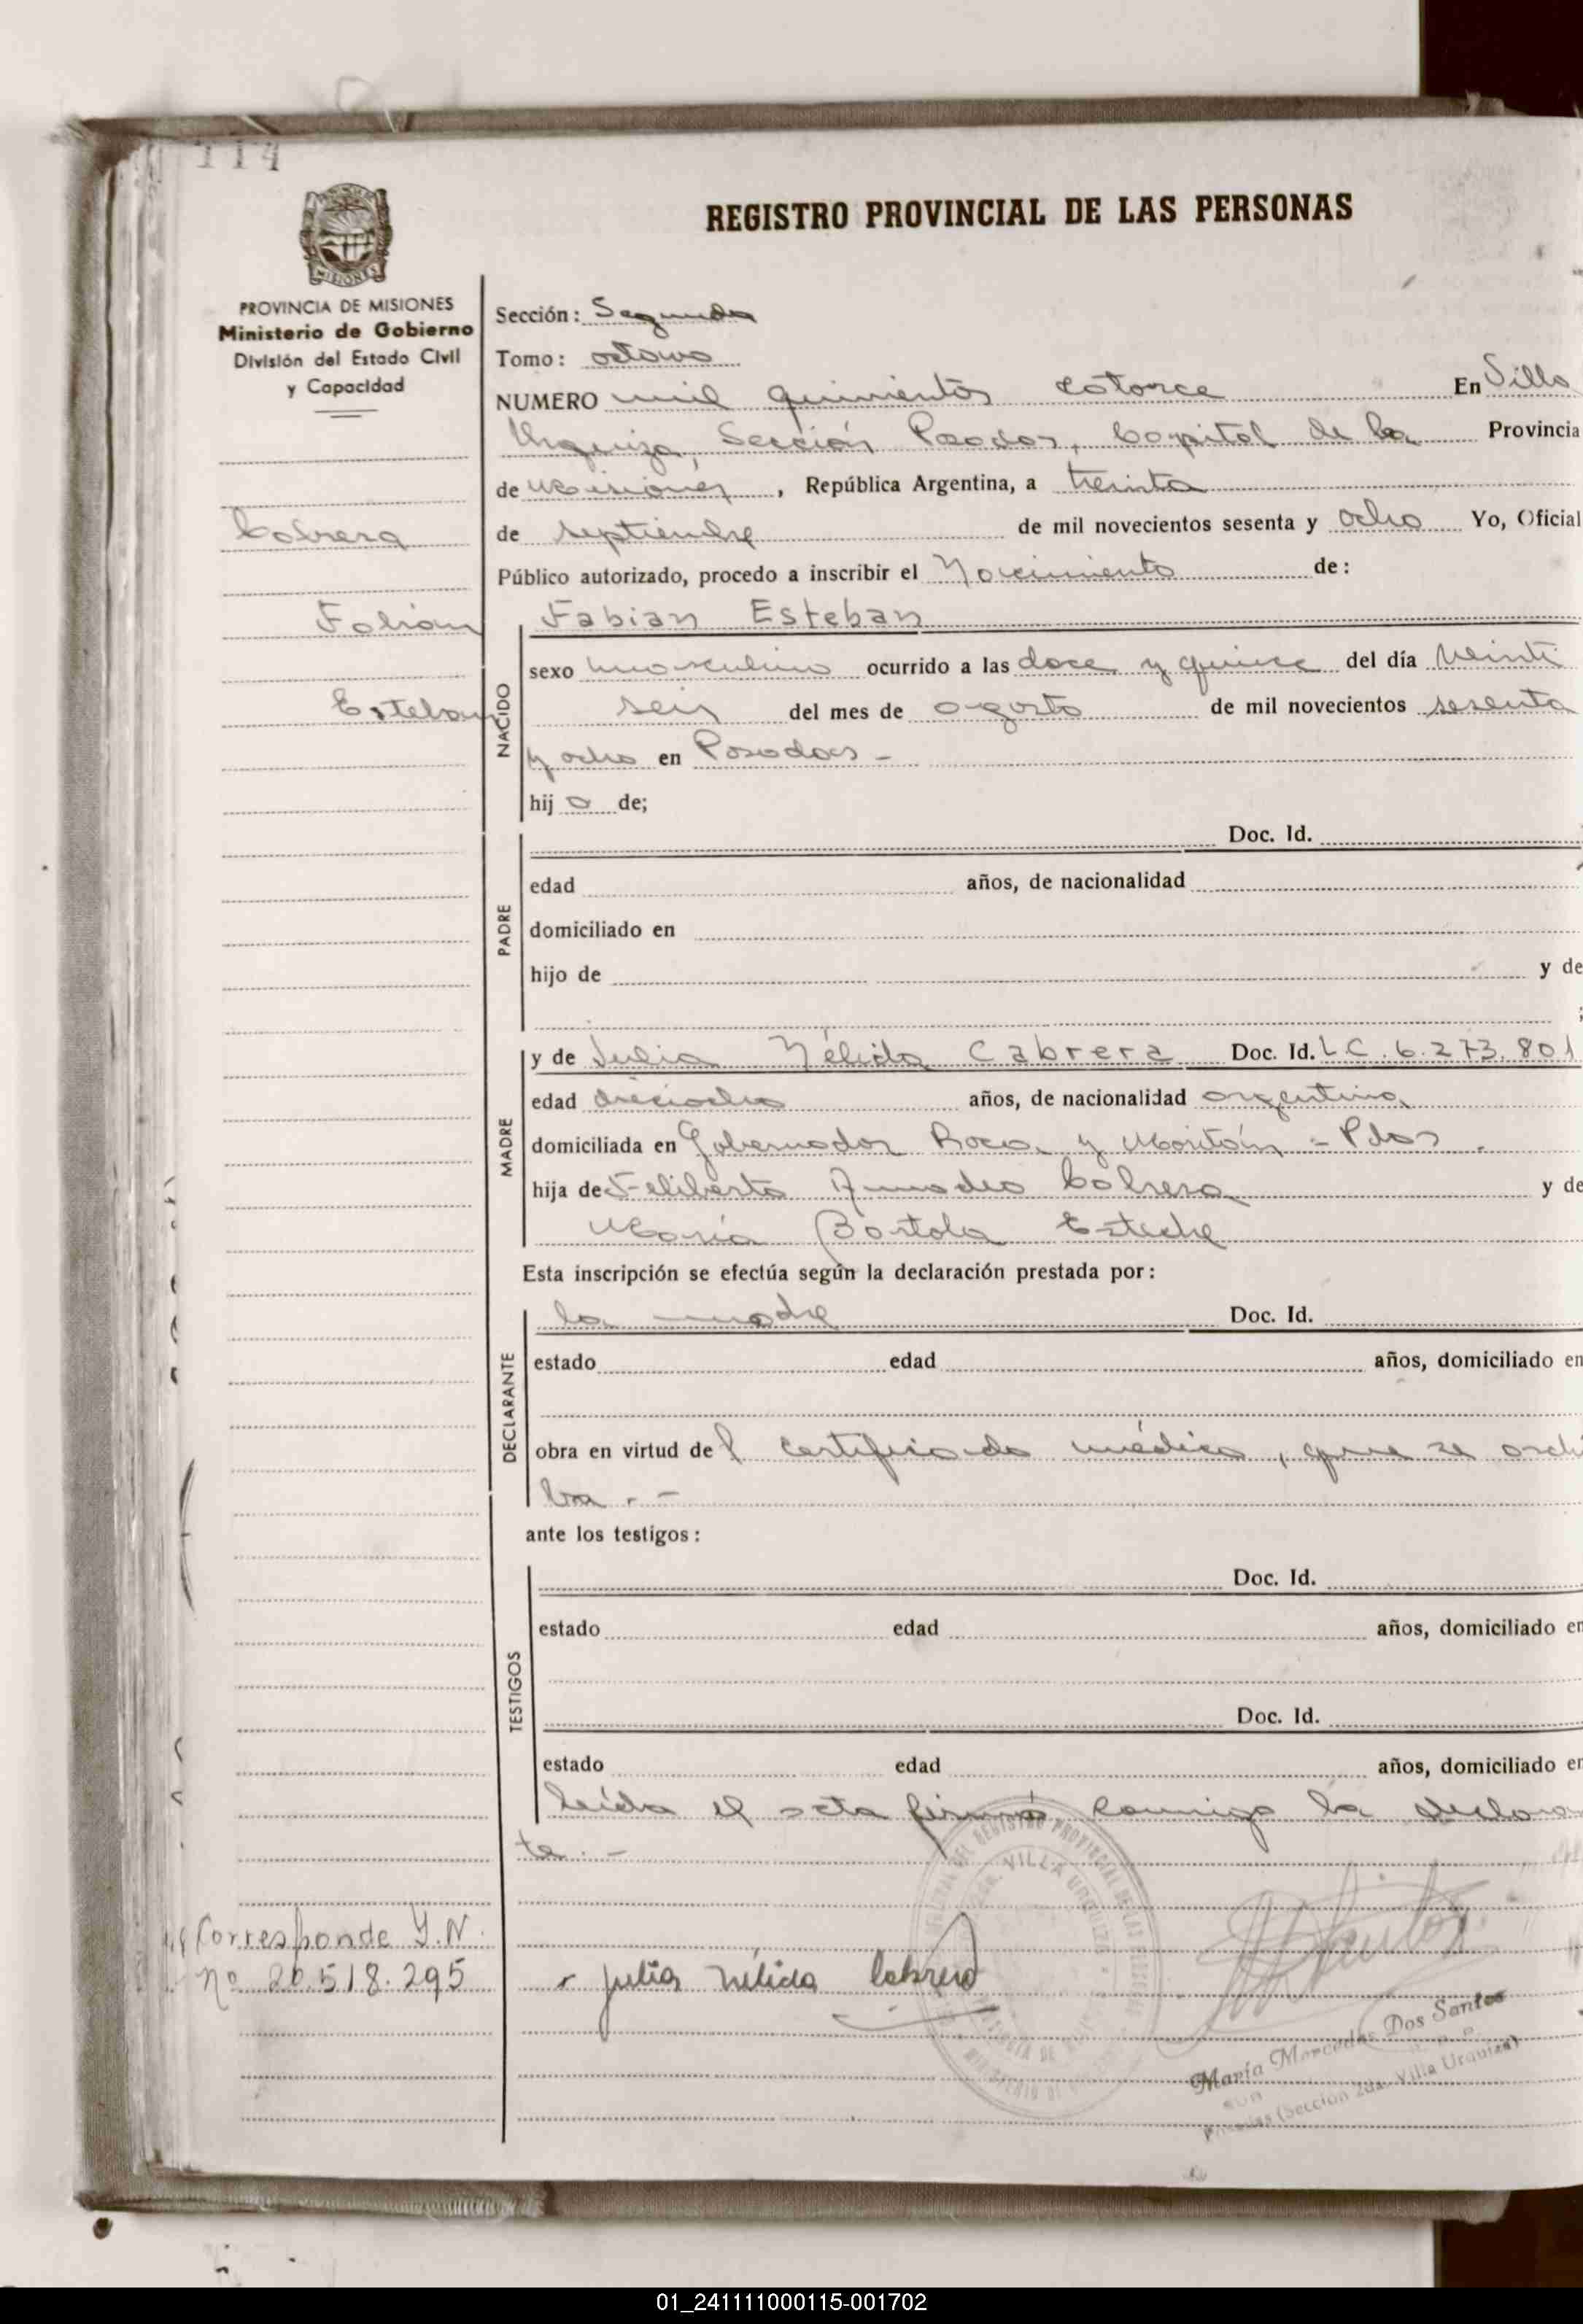 114
REGISTRO PROVINCIAL DE LAS PERSONAS
MISIONES
PROVINCIA DE MISIONES
Ministerio de Gobierno
División del Estado Civil
y Capacidad
Cabrera
Fabián
Esteban
Sección: Segunda
Tomo: octavo
NUMERO mil quinientos catorce En Villa
Urquiza, Sección Posadas, Capital de la Provincia
de Misiones, República Argentina, a treinta
de septiembre de mil novecientos sesenta y ocho Yo, Oficial
Público autorizado, procedo a inscribir el Nacimiento de:
NACIDO
Fabian Esteban
sexo masculino ocurrido a las doce y quince del día veinti
seis del mes de agosto de mil novecientos sesenta
y ocho en Posadas -
hij o de;
PADRE
Doc. Id.
edad años, de nacionalidad
domiciliado en
hijo de y de
;
MADRE
y de Julia Nélida Cabrera Doc. Id. L.C. 6.273.801
edad dieciocho años, de nacionalidad argentina
domiciliada en Gobernador Roca y Maitán - Pdas.
hija de Feliberto Amadeo Cabrera y de
María Bartola Esteche
Esta inscripción se efectúa según la declaración prestada por:
DECLARANTE
la madre Doc. Id.
estado edad años, domiciliado en
obra en virtud de l certificado médico, que se archi
va. -
ante los testigos:
TESTIGOS
Doc. Id.
estado edad años, domiciliado en
Doc. Id.
estado edad años, domiciliado en
leída el acta firmó conmigo la declaran
te. -
Corresponde I.N.
nº 20.518.295
Julia Nélida Cabrera
VILLA URQUIZA
María Mercedes Dos Santos
Posadas (Sección 2da. Villa Urquiza)
01_241111000115-001702